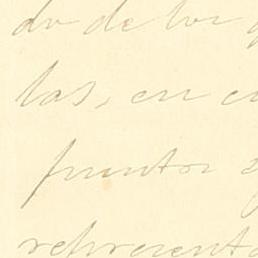 do de los
las, en c
puntos
representa